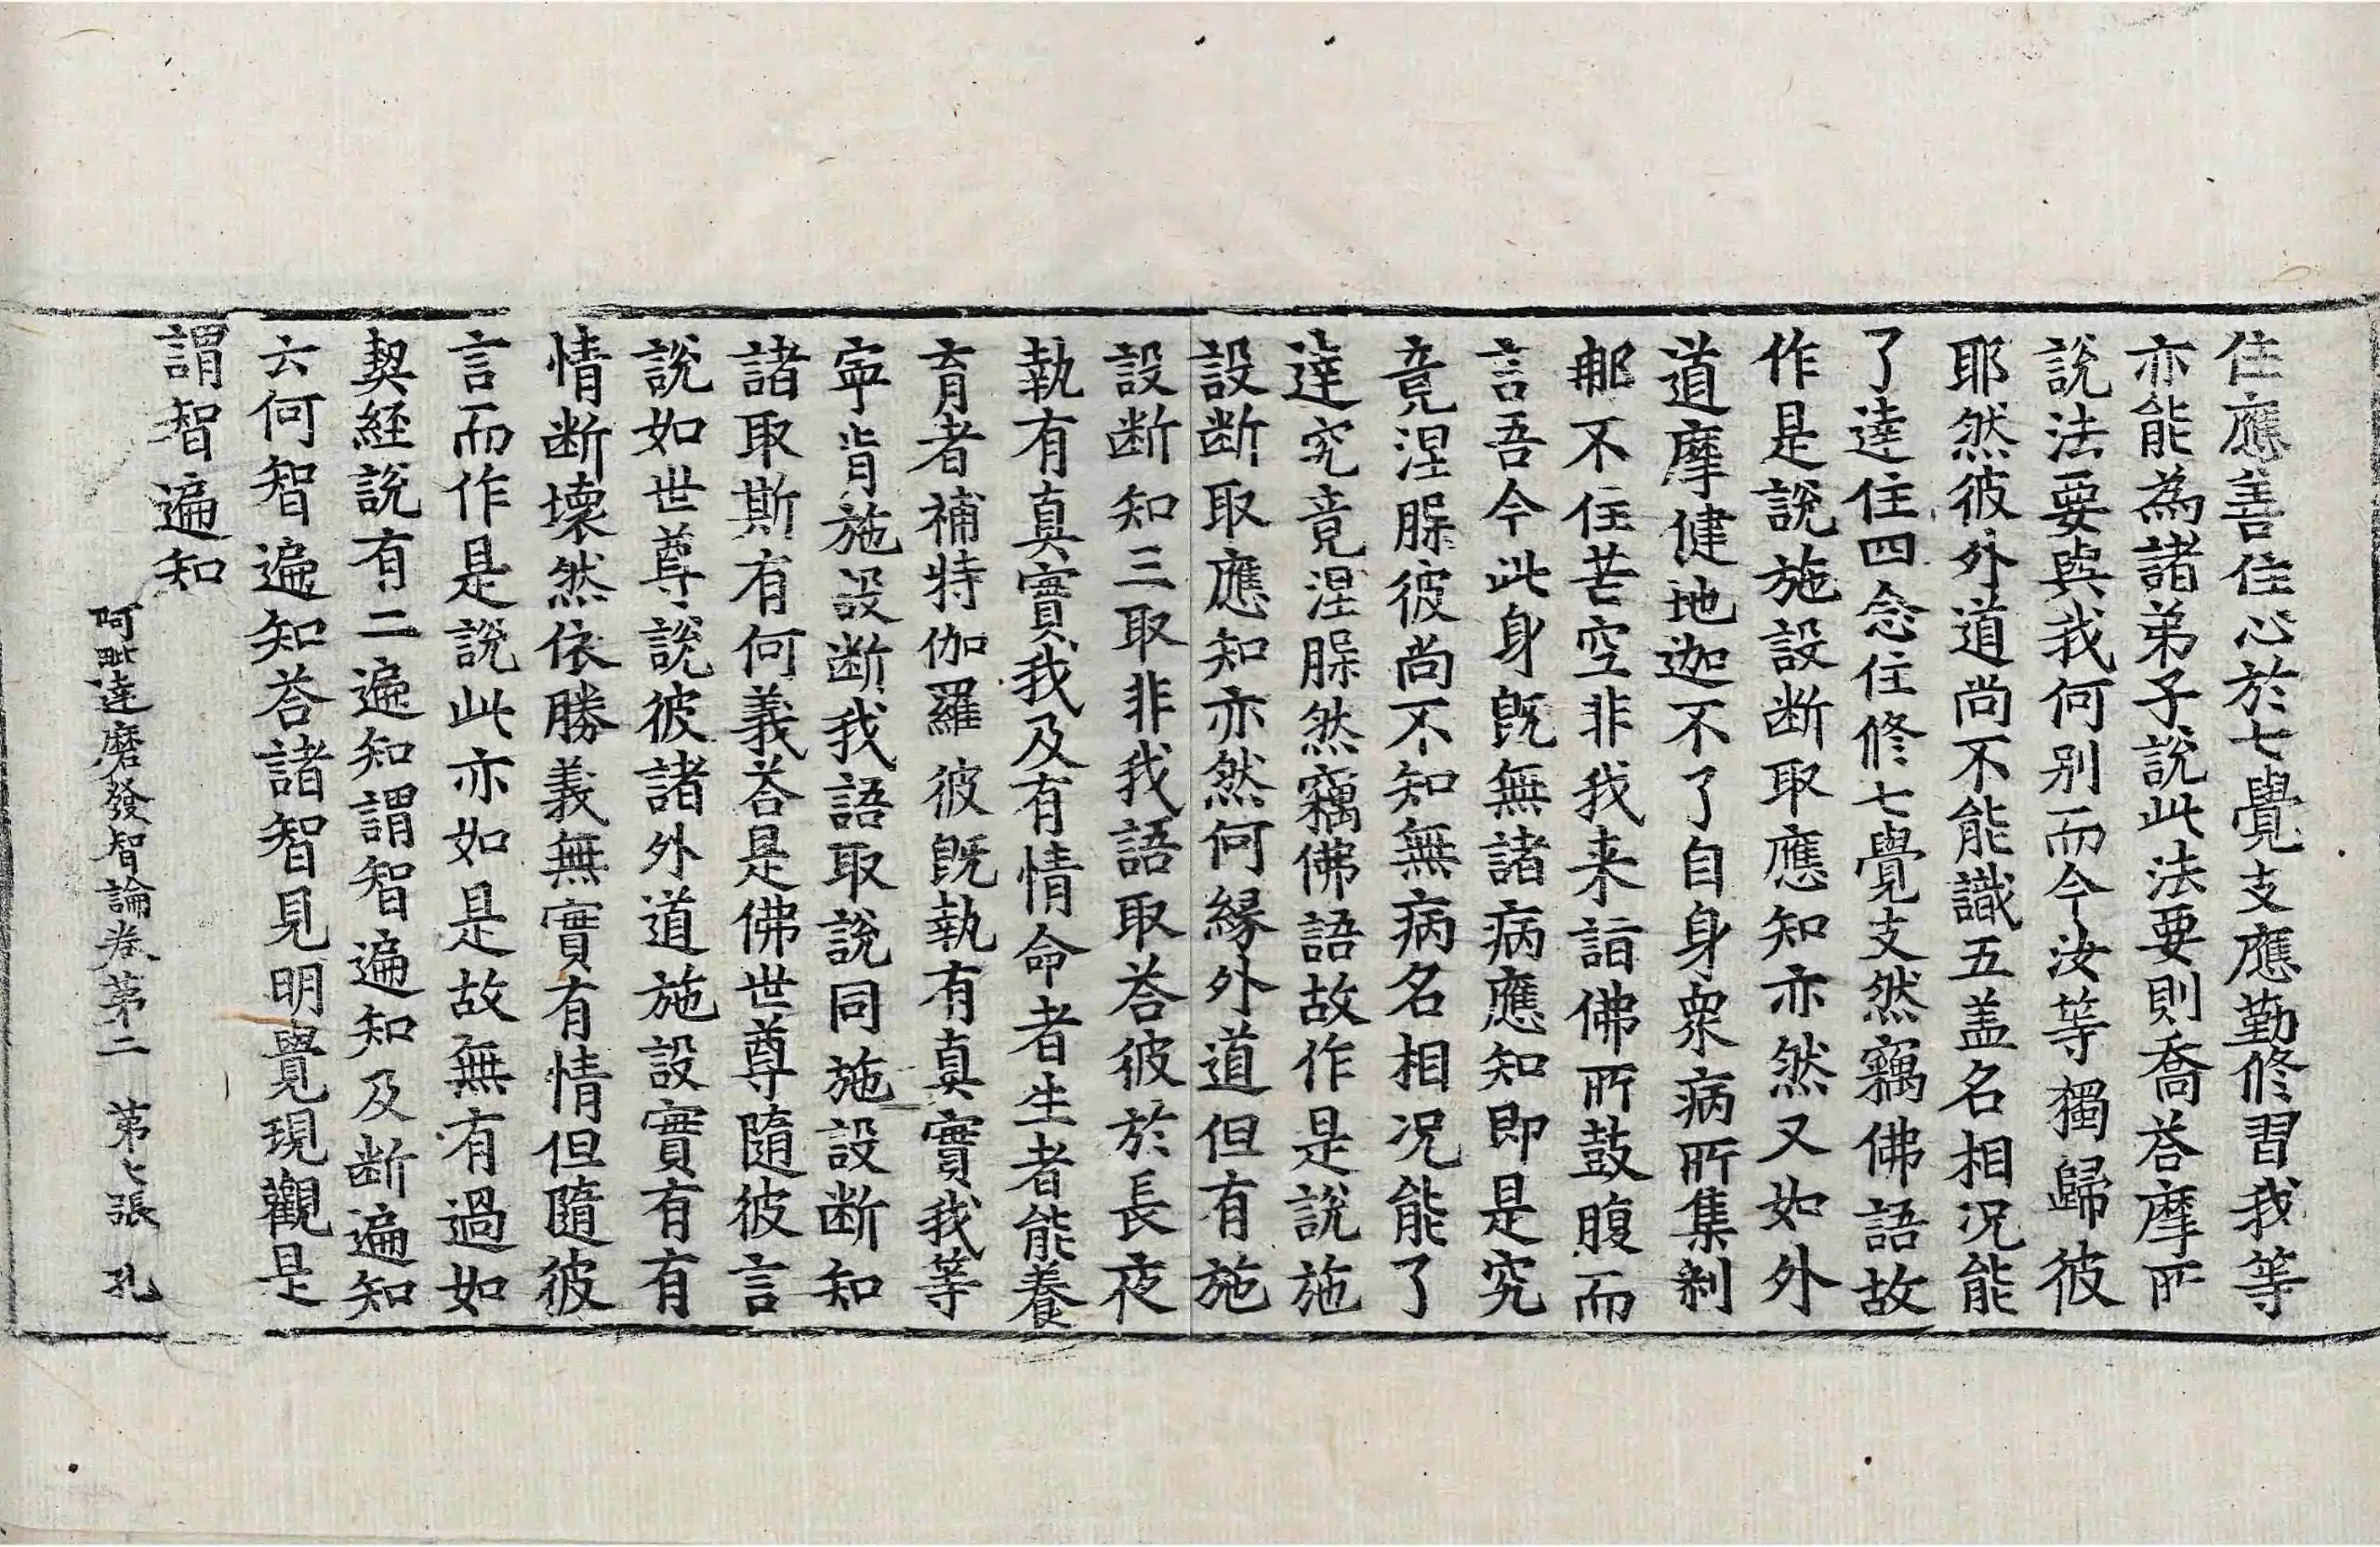 住應善住心於七覺支應勤修習我等
亦能為諸弟子說此法要則喬荅摩所
說法要與我何別而今汝等獨歸彼
耶然彼外道尚不能識五盖名相况能
了達住四念住修七覺支然竊佛語故
作是說施設断取應知亦然又如外
道摩健地迦不了自身衆病所集剎
那不住苦空非我来詣佛所鼓腹而
言吾今此身既無諸病應知即是究
竟涅槃彼尚不知無病名相况能了
達究竟涅槃然竊佛語故作是說施
設断取應知亦然何緣外道但有施
設断知三取非我語取荅彼於長夜
執有真實我及有情命者生者能養
育者補特伽羅彼既執有真實我等
寧肯施設断我語取說同施設断知
諸取斯有何義荅是佛世尊隨彼言
說如世尊說彼諸外道施設實有有
情断壞然依勝義無實有情但隨彼
言而作是說此亦如是故無有過如
契經說有二遍知謂智遍知及断遍知
云何智遍知荅諸智見明覺現觀是
謂智遍知
阿毗達磨發智論卷第二 第七張 孔